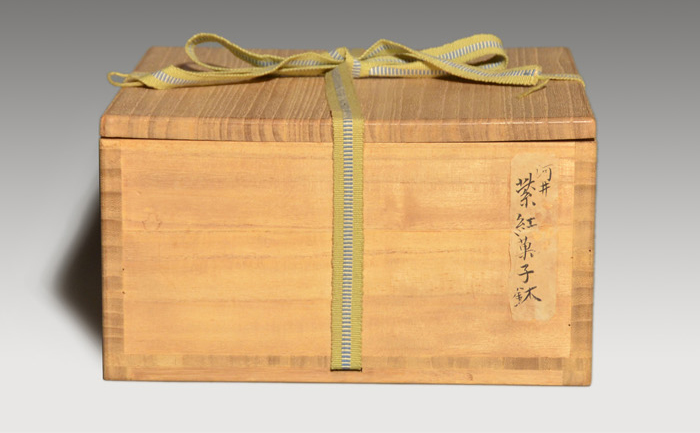 河井
紫紅菓子鉢